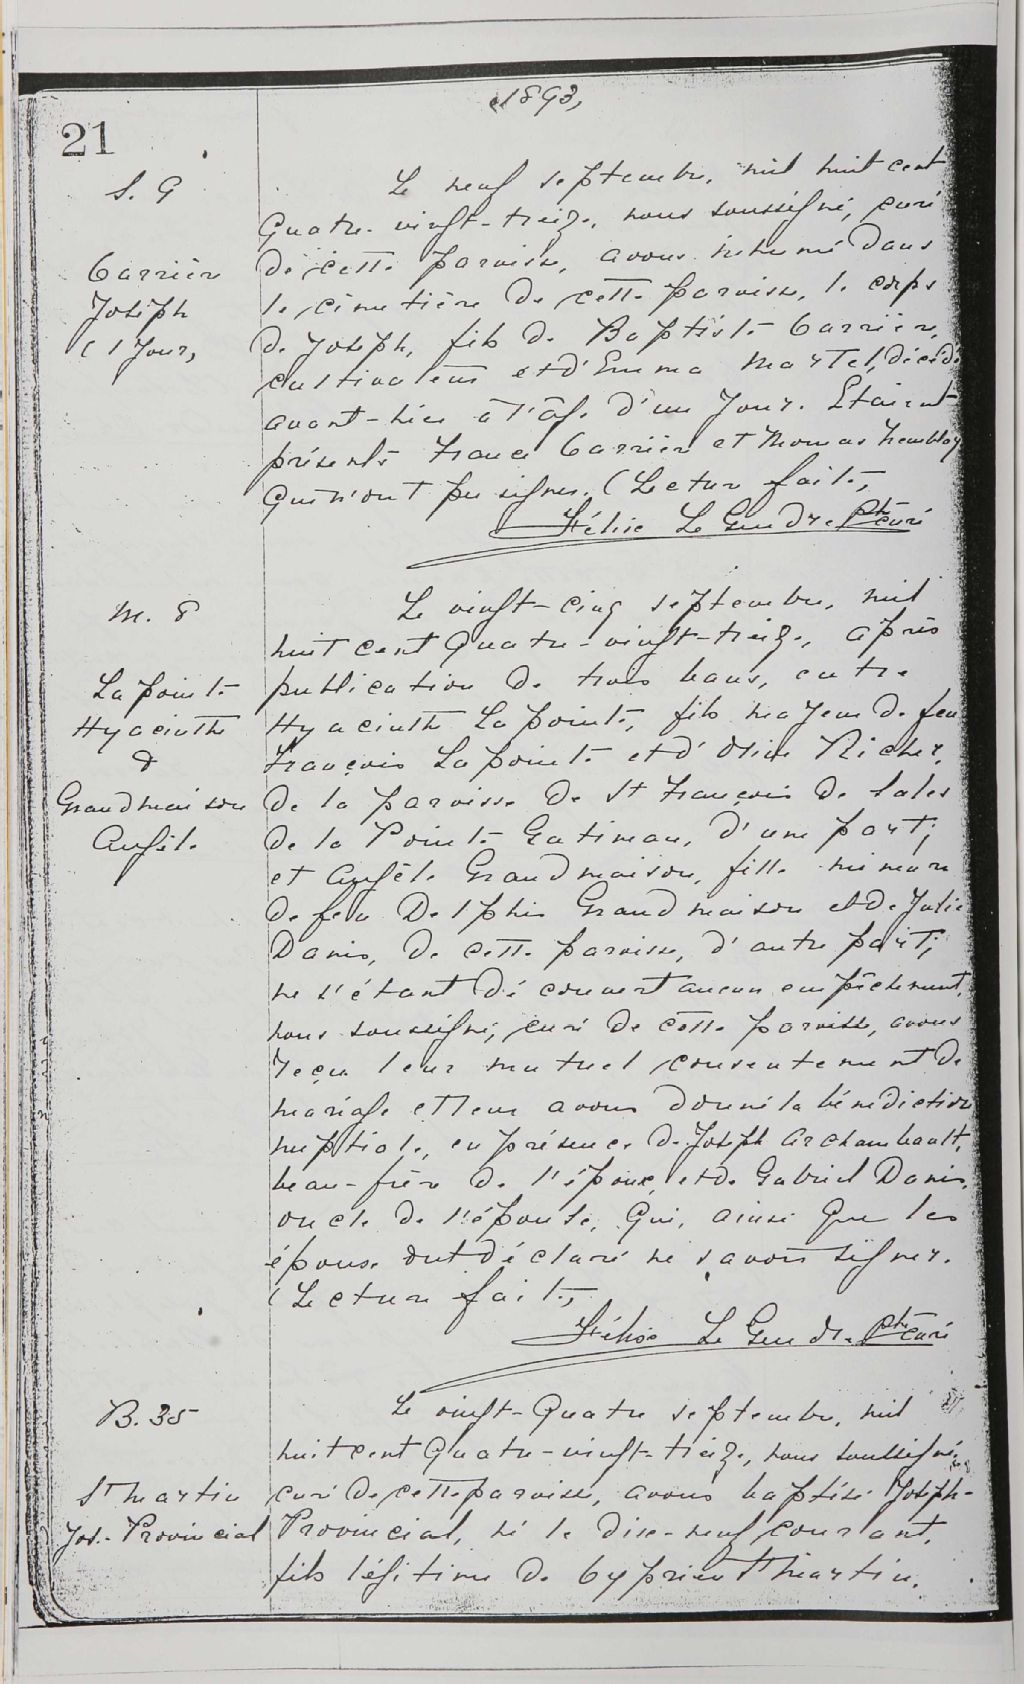 1893,
21
S. 9
Carrière
Joseph
(1 jour,
Le neuf septembre, mil huit cent
Quatre-vingt-treize, nous soussigné, curé
de cette paroisse, avons inhumé dans
le cimetière de cette paroisse, le corps
de Joseph, fils de Baptiste Carrière,
cultivateur et d'Emma Martel, décédé
avant-hier à l'âge d'un jour. Etaient
présents France Carrière et Thomas Tremblay
Qui n'ont pu signer. (Lecture faite,
Félix Le Gendre Ptre curé
M. 8
Lapointe
Hyacinthe
&
Grandmaison
Angèle
Le vingt-cinq septembre, mil
huit cent Quatre-vingt-treize, après
publication de trois bans, entre
Hyacinthe Lapointe, fils majeur de feu
François Lapointe et d'Osine Richer,
de la paroisse de St François de Sales
de la Pointe Gatineau, d'une part;
et Angèle Grandmaison, fille mineure
de feu Delphis Grandmaison et de Julie
Danis, de cette paroisse, d'autre part;
ne s'étant découvert aucun empêchement,
nous soussigné, curé de cette paroisse, avons
reçu leur mutuel consentement de
mariage et leur avons donné la bénédiction
nuptiale, en présence de Joseph Archambault,
beau-frère de l'époux, et de Gabriel Danis,
oncle de l'épouse, Qui, ainsi Que les
époux ont déclaré ne savoir signer.
(Lecture faite,
Félix Le Gendre Ptre curé
B. 35
St Martin
Jos.-Provincial
Le vingt-Quatre septembre, mil
huit cent Quatre-vingt-treize, nous soussigné,
curé de cette paroisse, avons baptisé Joseph-
Provincial, né le dix-neuf courant,
fils légitime de Cyprien St Martin,